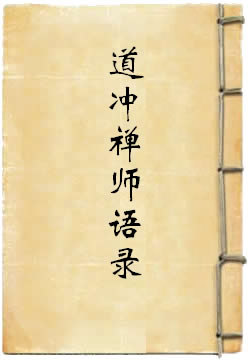 道冲禅师语录